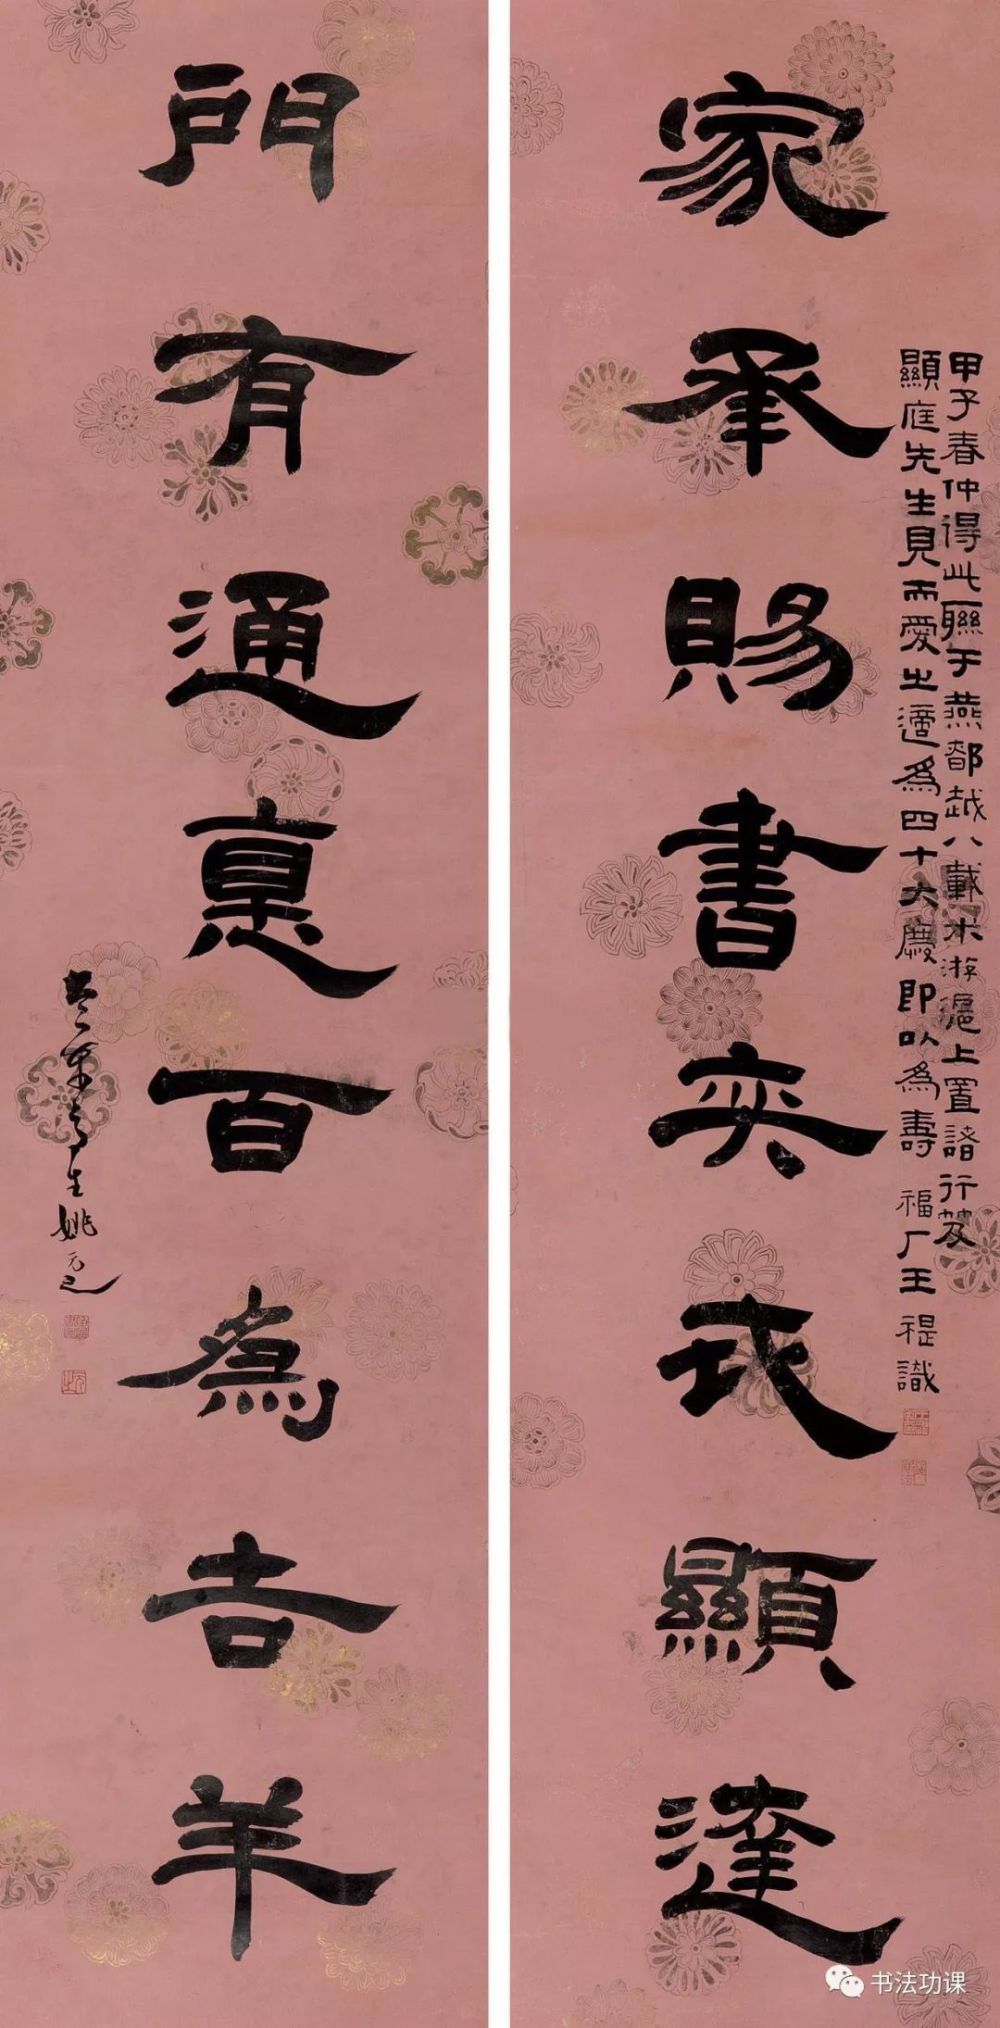 家承賜書奕顯達
甲子春仲得此聯于燕都越八載來游滬上置諸行笈
顯庭先生見而愛之適爲四十大慶即以爲壽 福厂王禔識
門有通惪百爲吉羊
竹葉亭生姚元之
书法功课